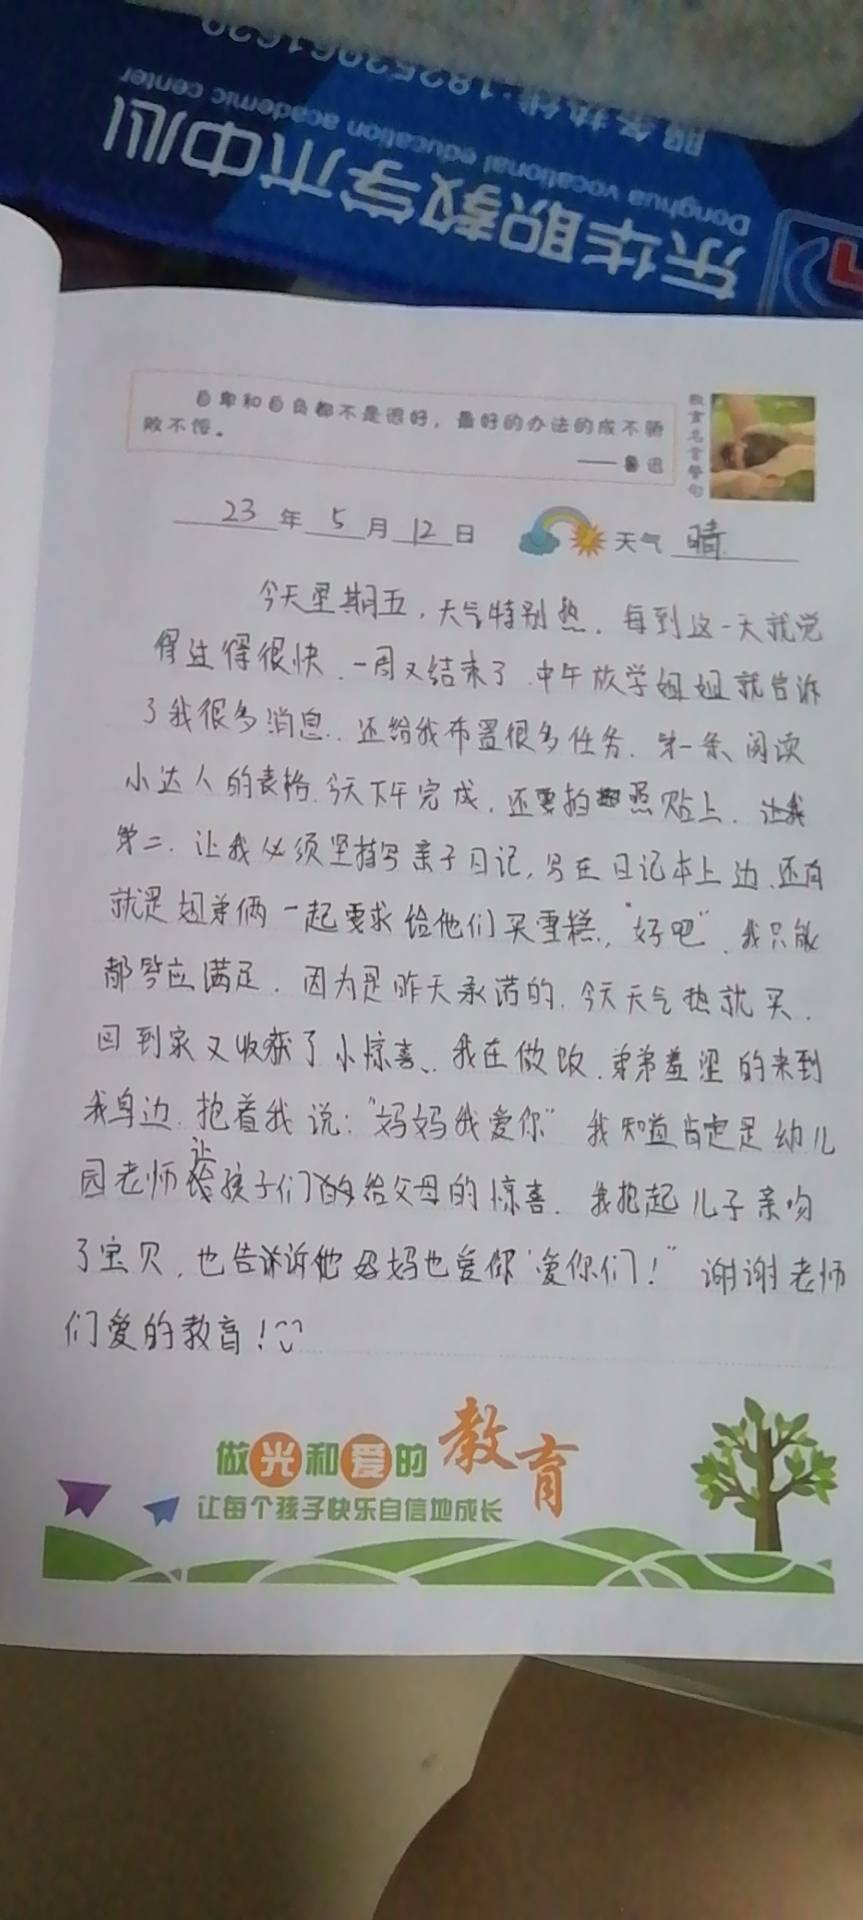 东华职教学术中心
Donghua vocational education academic center
自卑和自负都不是很好，最好的办法的成不骄
败不馁。
—— 鲁迅
教育名言警句
23年5月12日 天气 晴
今天星期五，天气特别热．每到这一天就觉
得过得很快．一周又结束了．中午放学姐姐就告诉
了我很多消息．．还给我布置很多任务．第一条、阅读
小达人的表格．今天下午完成．还要拍照贴上．
第二．让我必须坚持写亲子日记，写在日记本上边．还有
就是姐弟俩一起要求给他们买雪糕．，“好吧”．我只能
都答应满足．因为是昨天承诺的．今天天气热就买．
回到家又收获了小惊喜、．我在做饭．弟弟羞涩的来到
我身边．抱着我说：“妈妈我爱你” 我知道肯定是幼儿
园老师让孩子们给父母的惊喜．我抱起儿子亲吻
了宝贝，也告诉他妈妈也爱你‘爱你们！” 谢谢老师
们爱的教育！
做光和爱的教育
让每个孩子快乐自信地成长